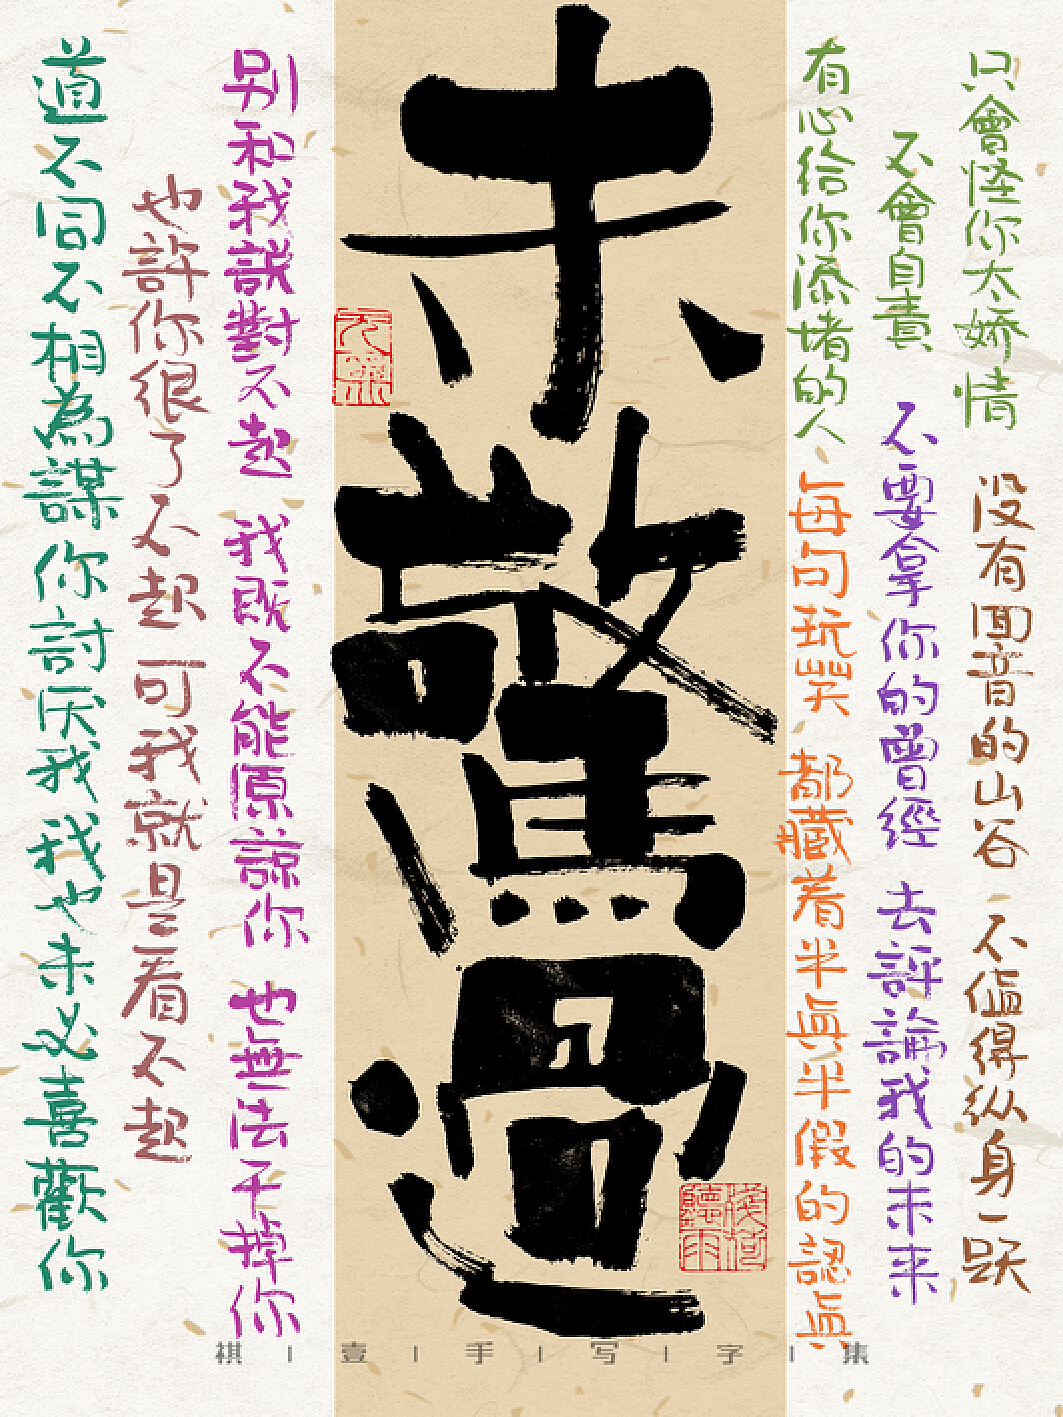 道不同不相為謀你討厌我我也未必喜歡你
也許你很了不起 可我就是看不起
别和我說對不起 我既不能原諒你 也無法干掉你
未驚過
有心给你添堵的人
每句玩笑 都藏着半眞半假的認眞
不會自責
不要拿你的曾經 去評論我的未来
只會怪你太娇情
没有回音的山谷 不值得纵身一跃
祺 | 壹 | 手 | 写 | 字 | 集